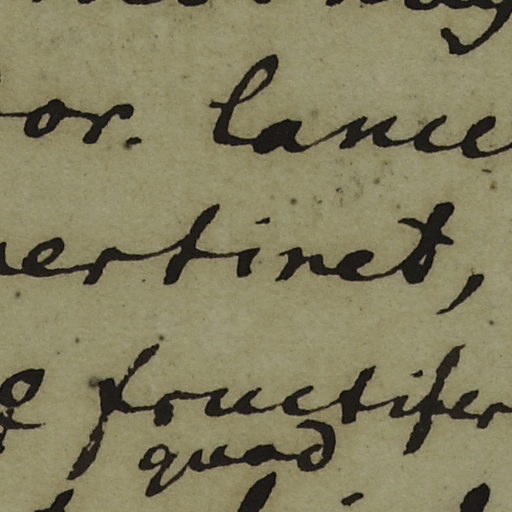 or. lance
ertinet,
♀ fructifer
quad